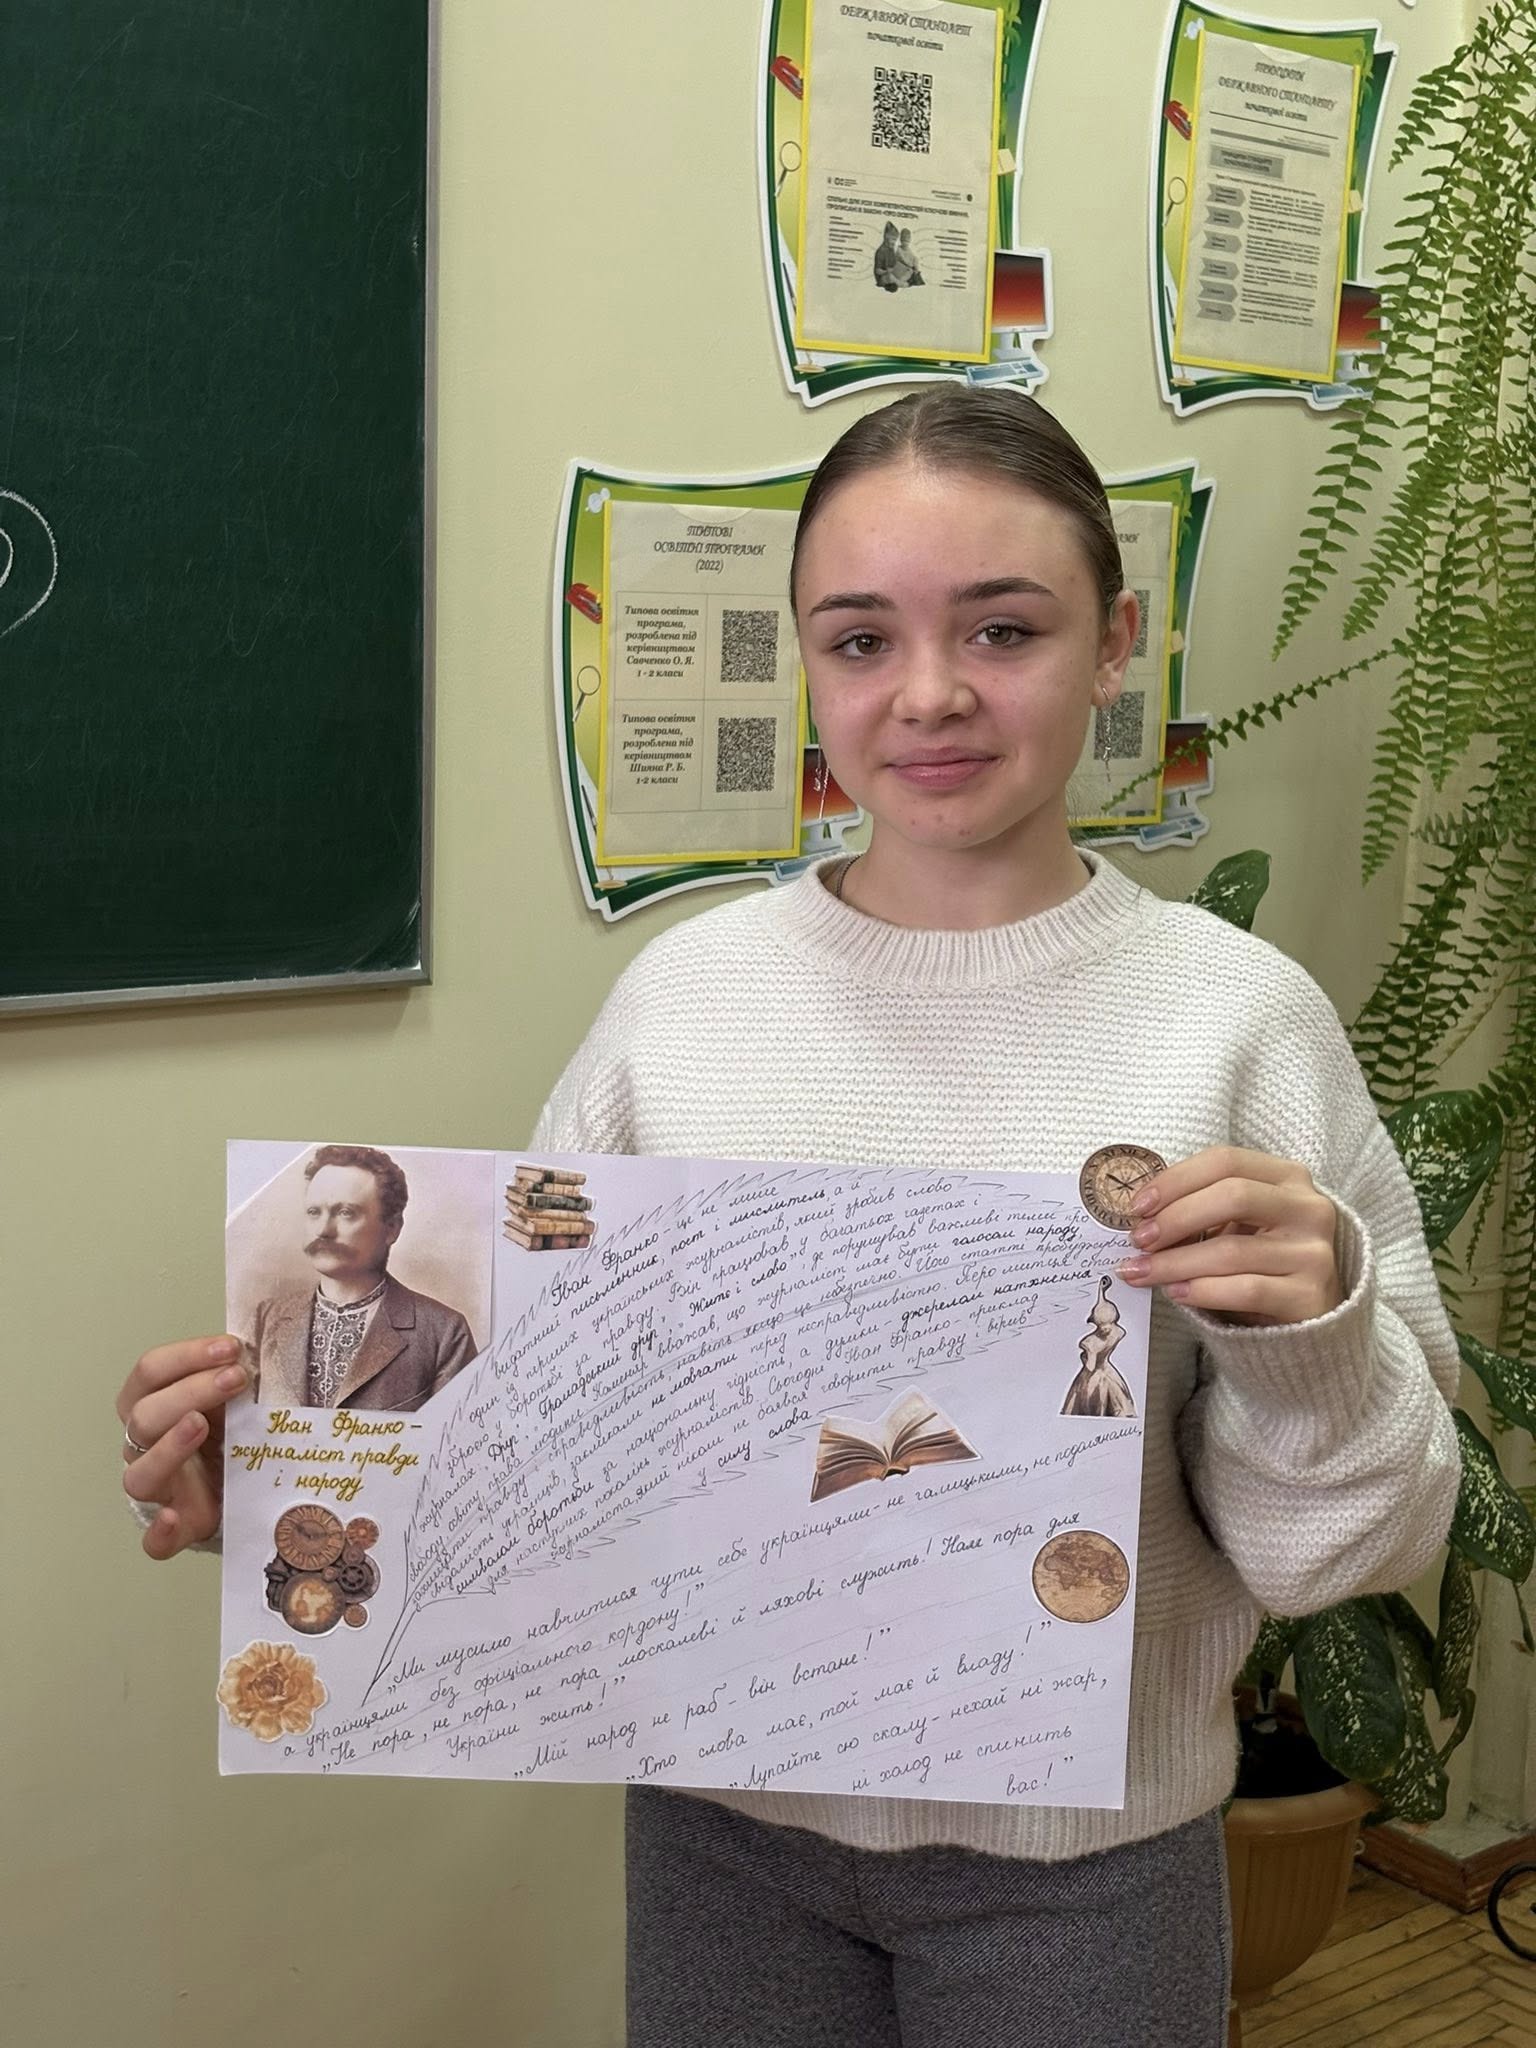 ДЕРЖАВНИЙ СТАНДАРТ
початкової освіти
СПІЛЬНІ ДЛЯ УСІХ КОМПЕТЕНТНОСТЕЙ КЛЮЧОВІ ВМІННЯ,
ПРОПИСАНІ В ЗАКОНІ «ПРО ОСВІТУ»
ПРИНЦИПИ
ДЕРЖАВНОГО СТАНДАРТУ
початкової освіти
ТИПОВІ
ОСВІТНІ ПРОГРАМИ
(2022)
Типова освітня
програма,
розроблена під
керівництвом
Савченко О. Я.
1 - 2 класи
Типова освітня
програма,
розроблена під
керівництвом
Шияна Р. Б.
1-2 класи
Іван Франко –
журналіст правди
і народу
Іван Франко - це не лише
видатний письменник, поет і мислитель, а й
один із перших українських журналістів, який зробив слово
зброєю у боротьбі за правду. Він працював у багатьох газетах і
журналах: „Друг", „Громадський друг", „Житє і слово", де порушував важливі теми про
свободу, освіту, права людини. Каменяр вважав, що журналіст має бути голосом народу,
правду і справедливість, навіть якщо це небезпечно. Його статті пробуджували
свідомість українців, закликали не мовчати перед несправедливістю. Перо митця стало
символом боротьби за національну гідність, а думки - джерелом натхнення
для наступних поколінь журналістів. Сьогодні Іван Франко - приклад
журналіста, який ніколи не боявся говорити правду і вірив
у силу слова
„Ми мусимо навчитися чути себе українцями - не галицькими, не
а українцями без офіціального кордону!"
„Не пора, не пора, не пора москалеві й ляхові служить! Нам пора для
України жить!"
„Мій народ не раб - він встане!"
„Хто слова має, той має й владу!"
„Лупайте сю скалу - нехай ні жар,
ні холод не спинить
вас!"